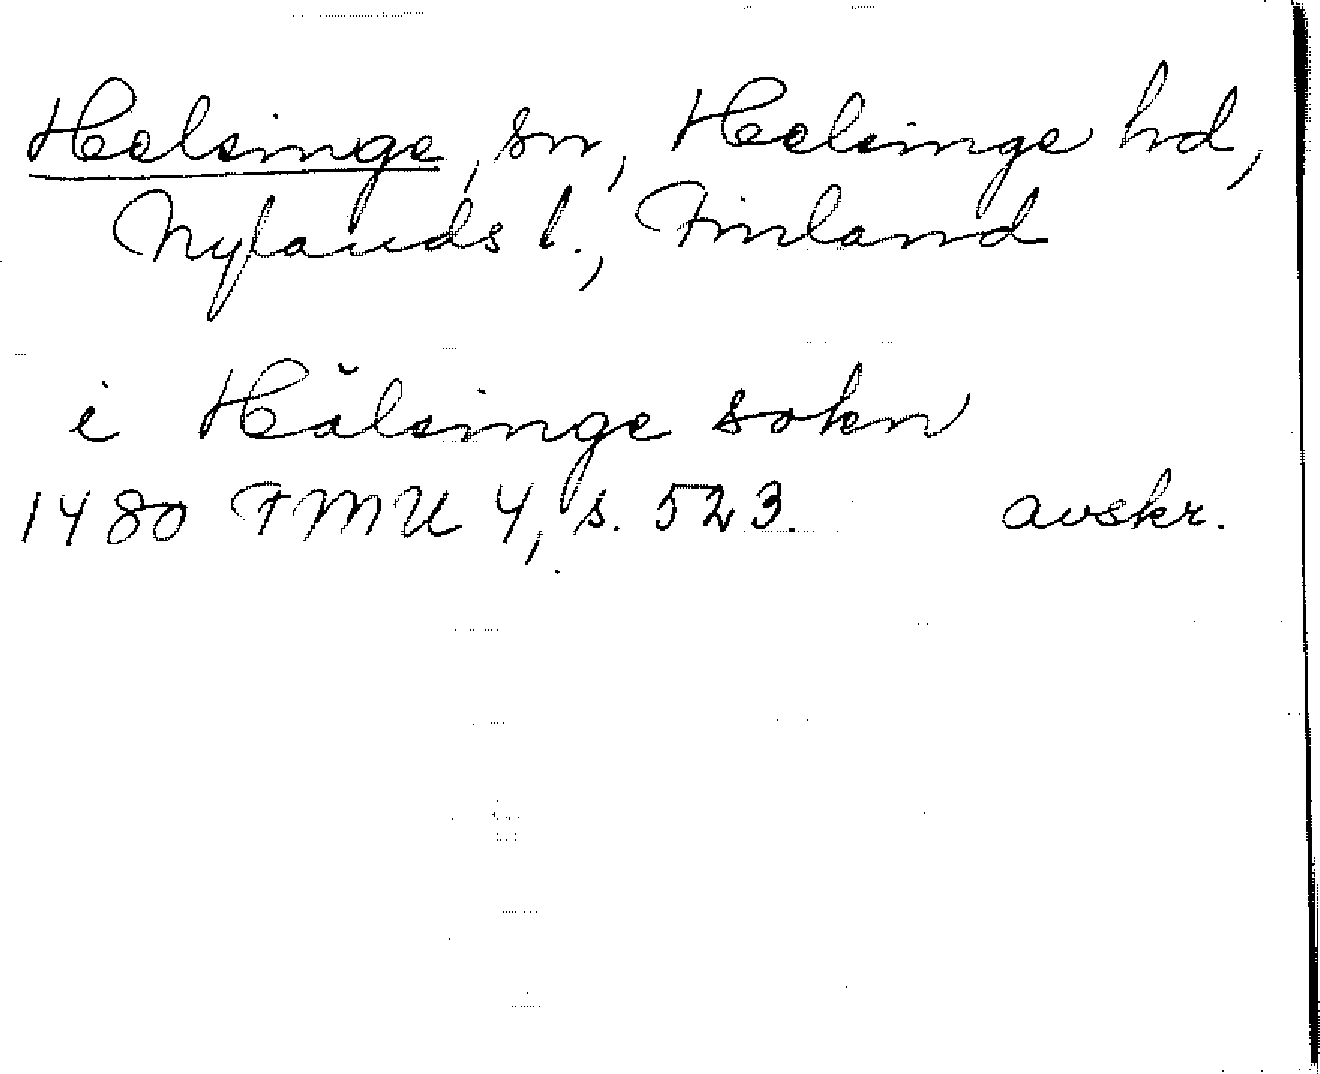 Helsinge, sn, Helsinge hd,
Nylands l., Finland
i Hälsinge sokn
1480 FMU 4, s. 523. avskr.